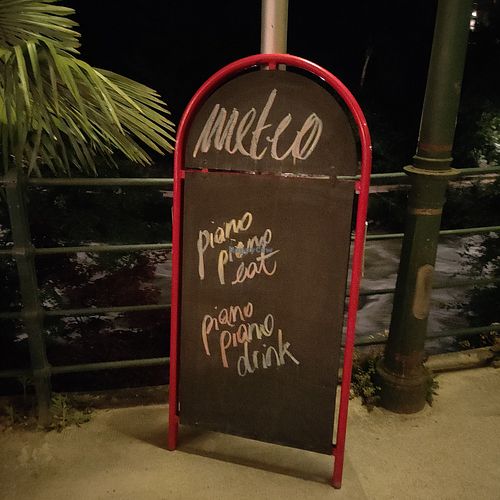 meteo
piano
piano
eat
piano
piano
drink